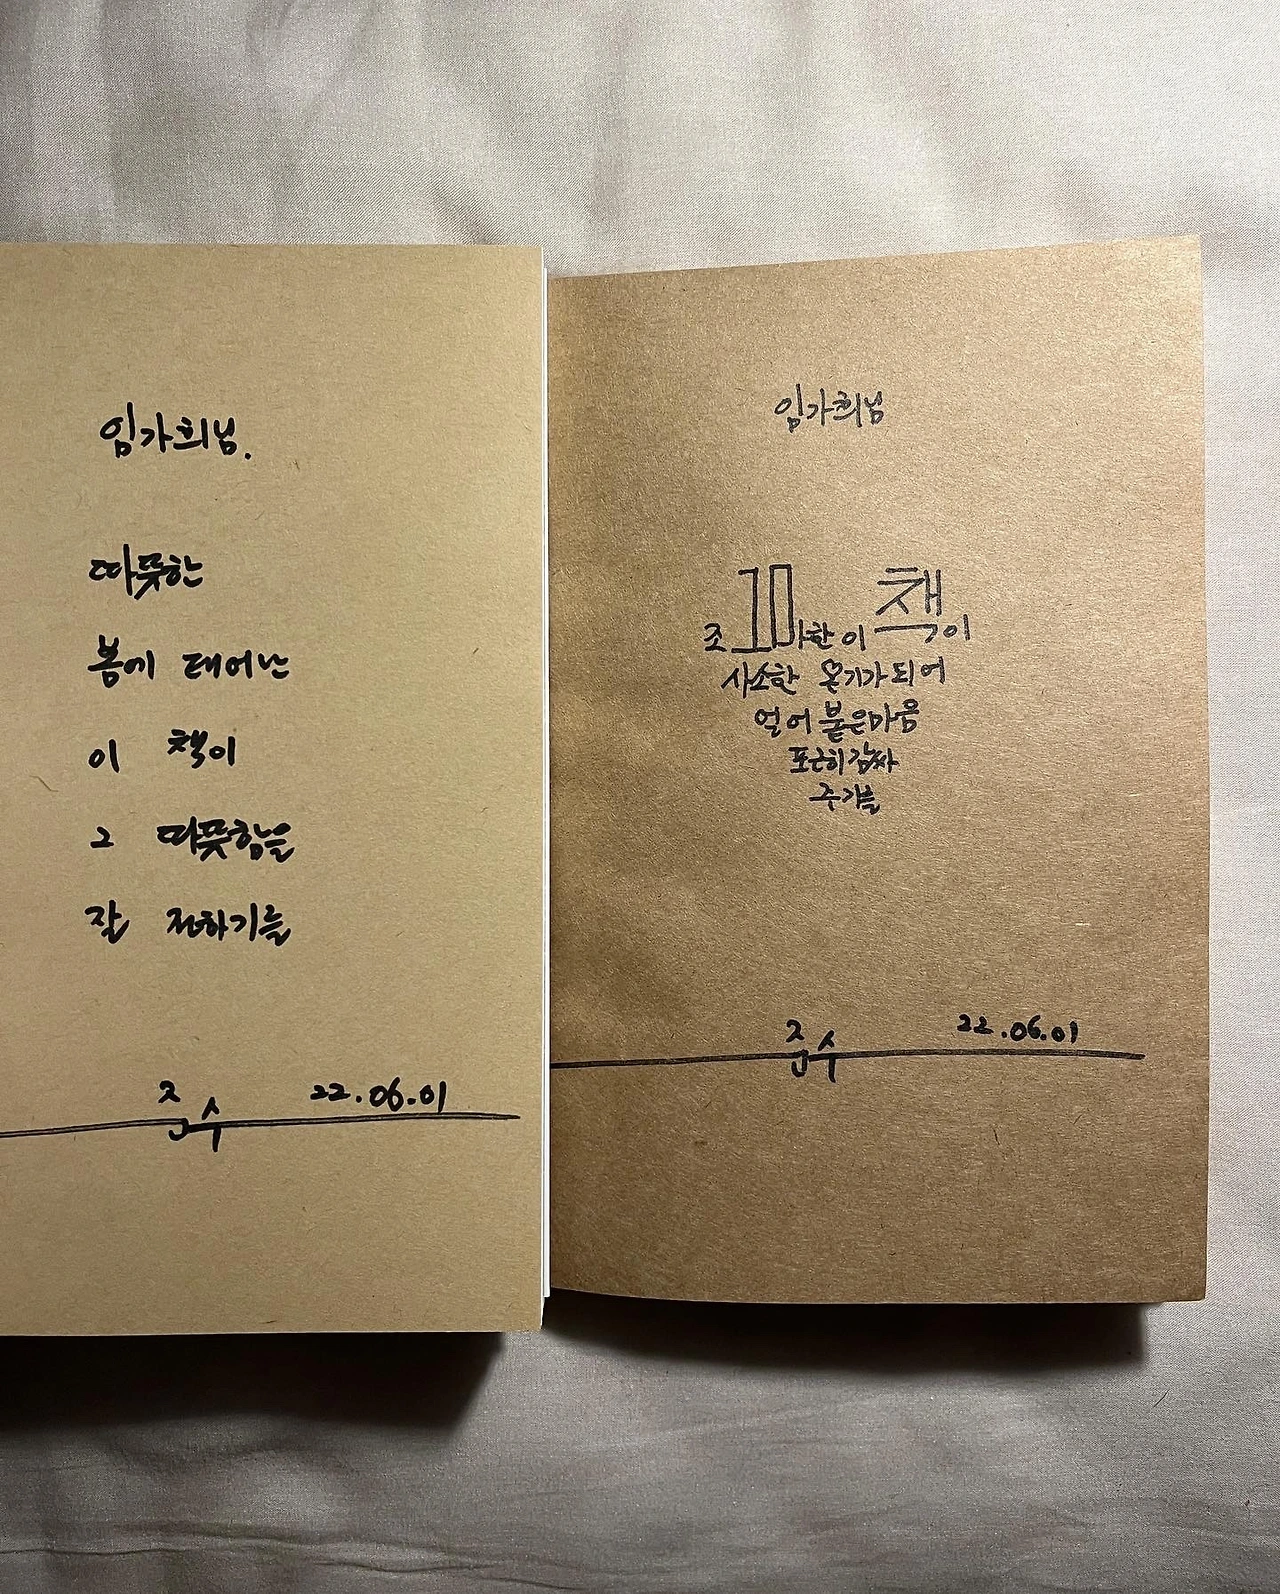 임가희님.
따뜻한
봄에 태어난
이 책이
그 따뜻함을
잘 전하기를
22.06.01
임가희님
조그마한 이 책이
사소한 온기가 되어
얼어붙은 마음
포근히 감싸
주기를
22.06.01